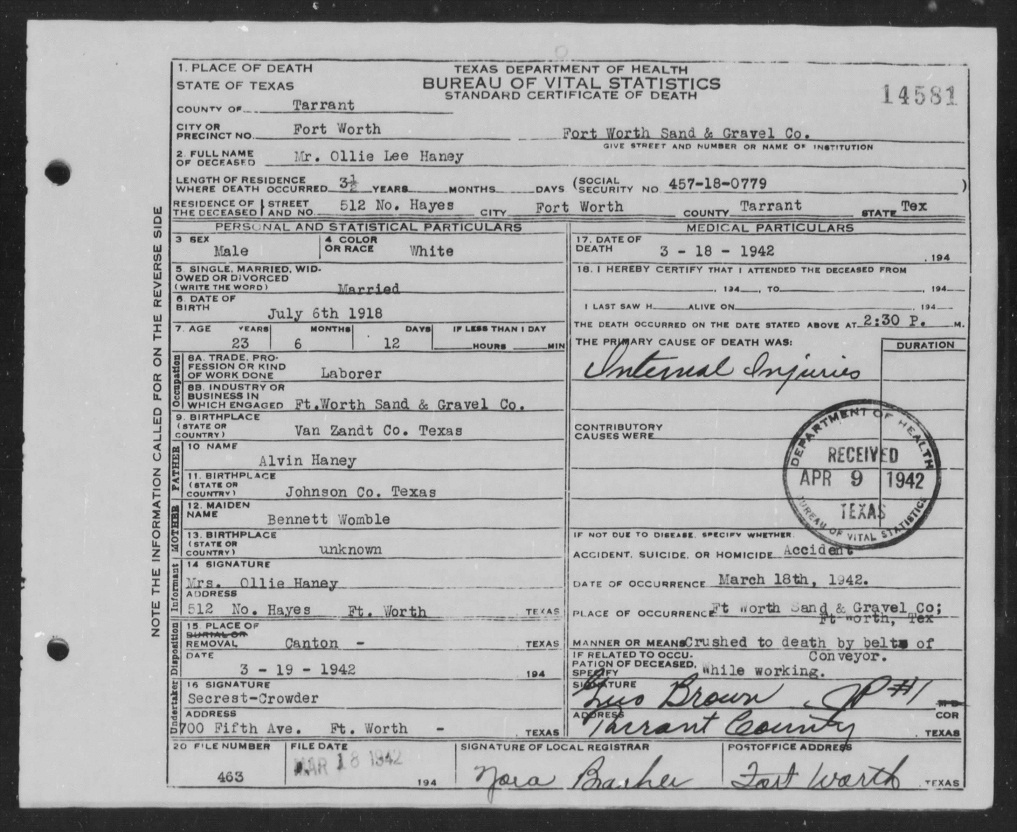 TEXAS DEPARTMENT OF HEALTH
BUREAU OF VITAL STATISTICS
STANDARD CERTIFICATE OF DEATH
14581
1. PLACE OF DEATH
STATE OF TEXAS
COUNTY OF Tarrant
CITY OR PRECINCT NO. Fort Worth Fort Worth Sand & Gravel Co.
GIVE STREET AND NUMBER OR NAME OF INSTITUTION
2. FULL NAME OF DECEASED Mr. Ollie Lee Haney
LENGTH OF RESIDENCE WHERE DEATH OCCURRED 3½ YEARS MONTHS DAYS (SOCIAL SECURITY NO. 457-18-0779 )
RESIDENCE OF THE DECEASED STREET AND NO. 512 No. Hayes CITY Fort Worth COUNTY Tarrant STATE Tex
NOTE THE INFORMATION CALLED FOR ON THE REVERSE SIDE
PERSONAL AND STATISTICAL PARTICULARS
3 SEX Male 4 COLOR OR RACE White
5. SINGLE, MARRIED, WIDOWED OR DIVORCED (WRITE THE WORD) Married
6. DATE OF BIRTH July 6th 1918
7. AGE YEARS MONTHS DAYS IF LESS THAN 1 DAY
23 6 12 HOURS MIN
Occupation
8A. TRADE, PROFESSION OR KIND OF WORK DONE Laborer
8B. INDUSTRY OR BUSINESS IN WHICH ENGAGED Ft.Worth Sand & Gravel Co.
9. BIRTHPLACE (STATE OR COUNTRY) Van Zandt Co. Texas
FATHER
10 NAME Alvin Haney
11. BIRTHPLACE (STATE OR COUNTRY) Johnson Co. Texas
MOTHER
12. MAIDEN NAME Bennett Womble
13. BIRTHPLACE (STATE OR COUNTRY) unknown
Informant
14 SIGNATURE
Mrs. Ollie Haney
ADDRESS
512 No. Hayes Ft. Worth TEXAS
Disposition
15 PLACE OF BURIAL OR REMOVAL Canton - TEXAS
DATE
3 - 19 - 1942 194
Undertaker
16 SIGNATURE
Secrest-Crowder
ADDRESS
700 Fifth Ave. Ft. Worth - TEXAS
MEDICAL PARTICULARS
17. DATE OF DEATH 3 - 18 - 1942 , 194
18. I HEREBY CERTIFY THAT I ATTENDED THE DECEASED FROM
, 194 , TO , 194
I LAST SAW H ALIVE ON 194
THE DEATH OCCURRED ON THE DATE STATED ABOVE AT 2:30 P. M.
THE PRIMARY CAUSE OF DEATH WAS: DURATION
Internal Injuries
CONTRIBUTORY CAUSES WERE
DEPARTMENT OF HEALTH
RECEIVED
APR 9 1942
TEXAS
BUREAU OF VITAL STATISTICS
IF NOT DUE TO DISEASE, SPECIFY WHETHER
ACCIDENT, SUICIDE, OR HOMICIDE Accident
DATE OF OCCURRENCE March 18th, 1942.
PLACE OF OCCURRENCE Ft Worth Sand & Gravel Co;
Ft Worth, Tex
MANNER OR MEANS Crushed to death by belts of
Conveyor.
IF RELATED TO OCCUPATION OF DECEASED, SPECIFY While working.
SIGNATURE Brown JP #1
ADDRESS Tarrant County COR TEXAS
20 FILE NUMBER FILE DATE SIGNATURE OF LOCAL REGISTRAR POSTOFFICE ADDRESS
463 MAR 18 1942 194 Nora Fort Worth TEXAS